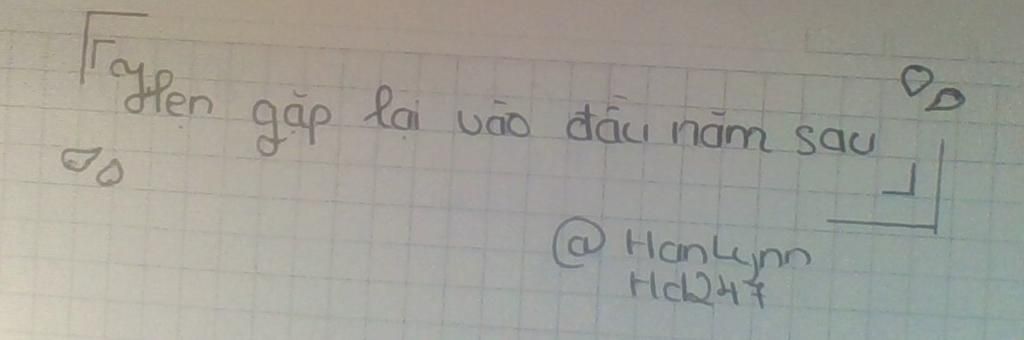 Hẹn gặp lại vào đầu năm sau
@ Hanlynn
Hd247